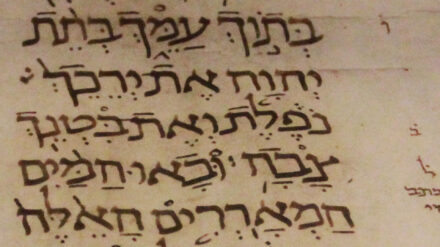 בְּתוֹךְ עַמֵּךְ בְּתֵת
יְהוָה אֶת יְרֵכֵךְ
נֹפֶלֶת וְאֶת בִּטְנֵךְ
צָבָה וּבָאוּ הַמַּיִם
הַמְאָרְרִים הָאֵלֶּה